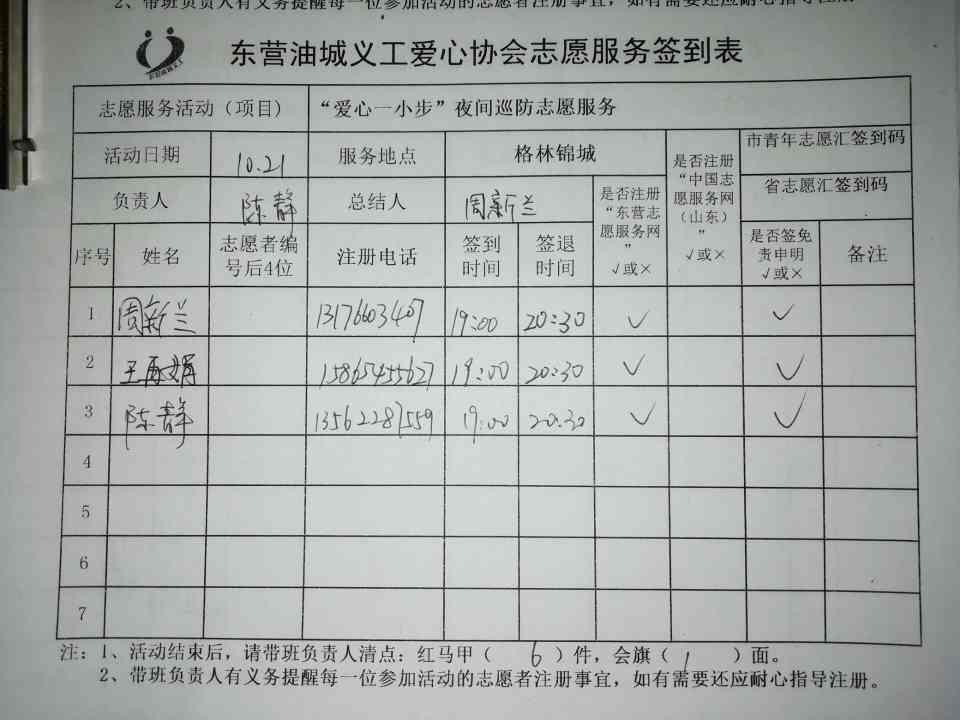 2、带班负责人有义务提醒每一位参加活动的志愿者注册事宜，如有需要还应耐心指导注册。
东营油城义工
东营油城义工爱心协会志愿服务签到表
志愿服务活动（项目） “爱心一小步”夜间巡防志愿服务
活动日期 10.21 服务地点 格林锦城 是否注册“中国志愿服务网（山东）”√或× 市青年志愿汇签到码
负责人 陈静 总结人 周新兰 是否注册“东营志愿服务网”√或× 省志愿汇签到码
序号 姓名 志愿者编号后4位 注册电话 签到时间 签退时间 是否签免责申明√或× 备注
1 周新兰 13176603407 19:00 20:30 ✓ ✓
2 王再娟 15865455627 19:00 20:30 ✓ ✓
3 陈静 13562287559 19:00 20:30 ✓ ✓
4
5
6
7
注：1、活动结束后，请带班负责人清点：红马甲（ 6 ）件，会旗（ 1 ）面。
2、带班负责人有义务提醒每一位参加活动的志愿者注册事宜，如有需要还应耐心指导注册。